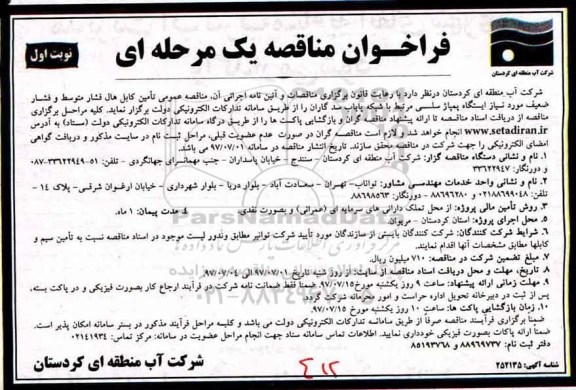 فراخوان مناقصه یک مرحله ای
نوبت اول
شرکت آب منطقه ای کردستان
شرکت آب منطقه ای کردستان درنظر دارد با رعایت قانون برگزاری مناقصات و آئین نامه اجرائی آن، مناقصه عمومی تأمین کابل هال فشار متوسط و فشار
ضعیف مورد نیاز ایستگاه پمپاژ سلسی مرتبط با شبکه پایاب سد گاران را از طریق سامانه تدارکات الکترونیکی دولت برگزار نماید. کلیه مراحل برگزاری
مناقصه از دریافت اسناد مناقصه تا ارائه پیشنهاد مناقصه گران و بازگشایی پاکت ها را از طریق درگاه سامانه تدارکات الکترونیکی دولت (ستاد) به آدرس
www.setadiran.ir انجام خواهد شد و لازم است مناقصه گران در صورت عدم عضویت قبلی، مراحل ثبت نام در سایت مذکور و دریافت گواهی
امضای الکترونیکی را جهت شرکت در مناقصه محقق سازند. تاریخ انتشار مناقصه در سامانه ۹۷/۰۷/۰۱ می باشد.
۱. نام و نشانی دستگاه مناقصه گزار: شرکت آب منطقه ای کردستان - سنندج - خیابان پاسداران - جنب مهمانسرای جهانگردی - تلفن: ۵۱-۳۳۶۲۲۹۴۹-۰۸۷
و دورنگار: ۳۳۶۲۲۹۴۷
۲. نام و نشانی واحد خدمات مهندسی مشاور: تواناب- تهران - سعادت آباد - بلوار دریا - بلوار شهرداری - خیابان ارغوان شرقی- پلاک ۱۴ -
تلفن: ۰۲۱۸۸۶۹۹۰۴۸ - ۸۸۶۹۶۲۸۰ و دورنگار: ۸۸۶۹۸۵۶۳
۳. روش تأمین مالی پروژه: از محل تملک دارائی های سرمایه ای (عمرانی) و بصورت نقدی. ۴. مدت پیمان: ۱ ماه.
۵. محل اجرای پروژه: استان کردستان - مریوان
۶. شرایط شرکت کنندگان: شرکت کنندگان بایستی از سازندگان مورد تأیید شرکت توانیر مطابق وندور لیست موجود در اسناد مناقصه نسبت به تأمین سیم و
کابلها مطابق مشخصات آنها اقدام نمایند.
۷. مبلغ تضمین شرکت در مناقصه: ۷۱۰ میلیون ریال.
۸. تاریخ، مهلت و محل دریافت اسناد مناقصه از سایت: از روز شنبه تاریخ ۹۷/۰۷/۰۱ الی ۹۷/۰۷/۰۴
۹. مهلت زمانی ارائه پیشنهاد: ساعت ۹ روز یکشنبه مورخ ۹۷/۰۷/۱۵ ضمناً فقط ضمانت نامه شرکت در فرآیند ارجاع کار بصورت فیزیکی و در پاکت بسته،
پس از ثبت در دبیرخانه تحویل اداره حراست و امور محرمانه شرکت گردد.
۱۰. زمان بازگشایی پاکت ها: ساعت ۱۰ روز یکشنبه مورخ ۹۷/۰۷/۱۵
ضمناً برگزاری فرآیند مناقصه صرفاً از طریق سامانه تدارکات الکترونیکی دولت می باشد و کلیه مراحل فرآیند مذکور در بستر سامانه امکان پذیر است.
ضمناً ارائه پاکات بصورت فیزیکی خودداری نمایید. اطلاعات تماس سامانه ستاد جهت انجام مراحل عضویت در سامانه: مرکز تماس: ۰۲۱۴۱۹۳۴
دفتر ثبت نام: ۸۸۹۶۹۷۳۷ و ۸۵۱۹۳۷۶۸
شرکت آب منطقه ای کردستان
شناسه آگهی: ۲۵۲۱۳۵
ParsNamadData
۰۲۱-۸۸۳۴۹۶۷۰